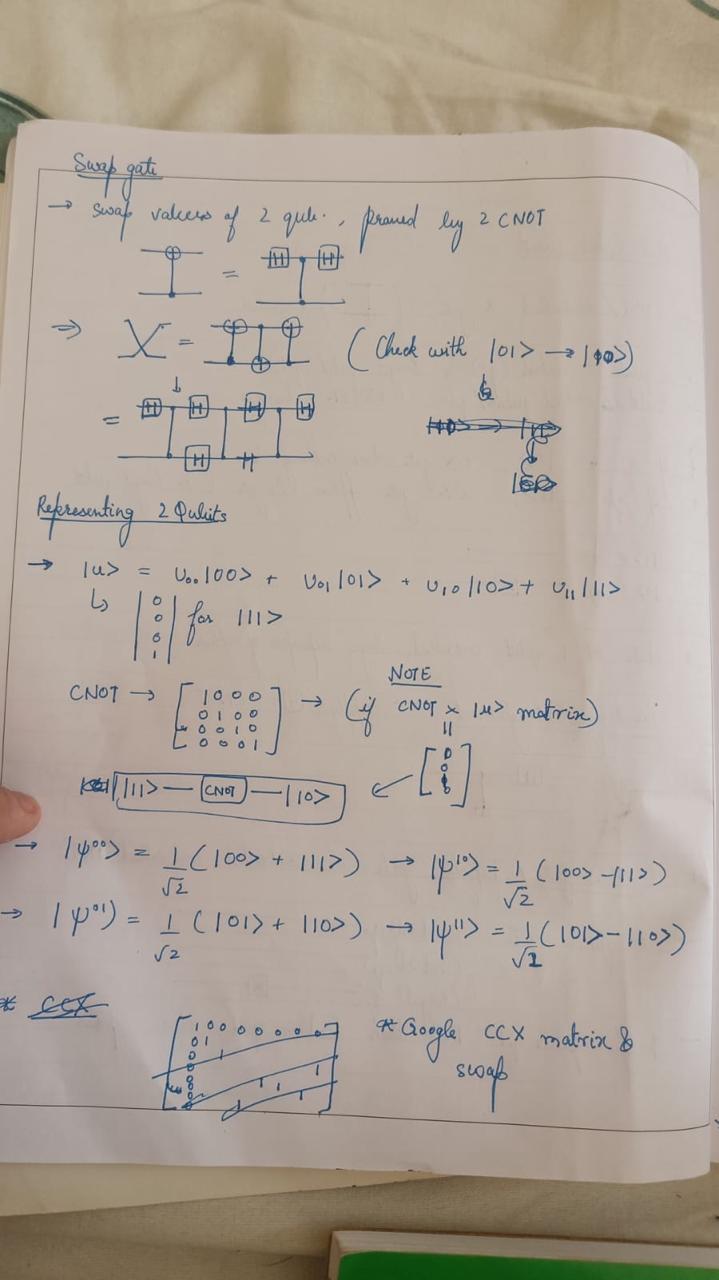 Swap gate
→ swap values of 2 qubi., pramed by 2 CNOT
= H H
⇒ = (Check with |01> → |10>)
= H H H H
H H
Representing 2 Qubits
→ |u> = U₀₀|00> + U₀₁|01> + U₁₀|10> + U₁₁|11>
↳ [0 0 0 1] for |11>
NOTE
CNOT → [1 0 0 0 → (if CNOT × |u> matrix)
0 1 0 0
0 0 1 0
0 0 0 1]
|11> — CNOT — |10>
→ |ψ⁰⁰> = 1/√2 (|00> + |11>) → |ψ¹⁰> = 1/√2 (|00> - |11>)
→ |ψ⁰¹) = 1/√2 (|01> + |10>) → |ψ¹¹> = 1/√2 (|01> - |10>)
* CCX
1 0 0 0 0 0 0 0 * Google CCX matrix &
0 1 swap